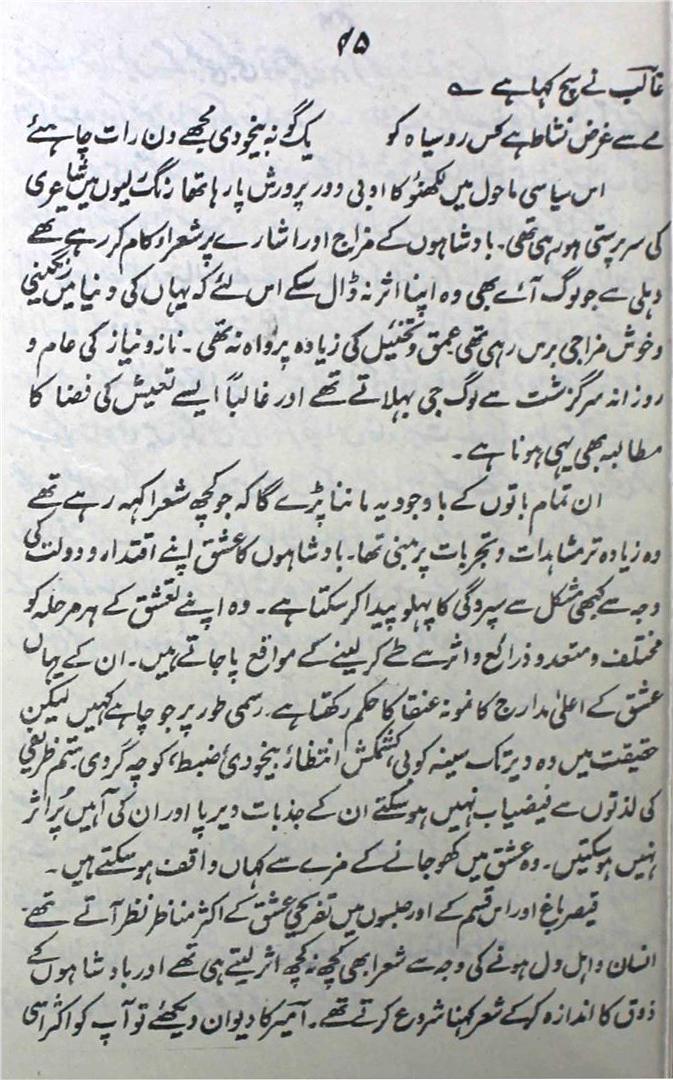 ۴۵
غالب نے سچ کہا ہے ؎
مے سے غرض نشاط ہے کس روسیاہ کو یک گونہ بیخودی مجھے دن رات چاہئے
اس سیاسی ماحول میں لکھنؤ کا ادبی دور پرورش پا رہا تھا رنگ رلیوں میں شاعری
کی سرپرستی ہو رہی تھی۔ بادشاہوں کے مزاج اور اشارے پر شعرا کام کر رہے تھے
دہلی سے جو لوگ آئے بھی وہ اپنا اثر نہ ڈال سکے اس لئے کہ یہاں کی دنیا میں رنگینی
و خوش مزاجی برس رہی تھی عمق و تخئیل کی زیادہ پرواہ نہ تھی۔ نازو نیاز کی عام و
روزانہ سرگزشت سے لوگ جی بہلاتے تھے اور غالباً ایسے تعیش کی فضا کا
مطالبہ بھی یہی ہونا ہے۔
ان تمام باتوں کے باوجود یہ ماننا پڑے گا کہ جو کچھ شعرا کہہ رہے تھے
وہ زیادہ تر مشاہدات و تجربات پر مبنی تھا۔ بادشاہوں کا عشق اپنے اقتدار و دولت کی
وجہ سے کبھی مشکل سے سپردگی کا پہلو پیدا کر سکتا ہے۔ وہ اپنے تعشق کے ہر مرحلہ کو
مختلف و متعدد ذرائع و اثر سے طے کر لینے کے مواقع پا جاتے ہیں۔ ان کے یہاں
عشق کے اعلیٰ مدارج کا نمونہ عنقا کا حکم رکھتا ہے۔ رسمی طور پر جو چاہے کہیں لیکن
حقیقت میں وہ دیر تک سینہ کوبی، کشمکش انتظار، بیخودیٔ ضبط، کوچہ گردی، ستم ظریفی
کی لذتوں سے فیضیاب نہیں ہو سکتے ان کے جذبات دیرپا اور ان کی آہیں پُر اثر
نہیں ہو سکتیں۔ وہ عشق میں کھو جانے کے مزے سے کہاں واقف ہو سکتے ہیں۔
قیصر باغ اور اس قسم کے اور جلسوں میں تفریحی عشق کے اکثر مناظر نظر آتے تھے۔
انسان و اہل دل ہونے کی وجہ سے شعرا بھی کچھ نہ کچھ اثر لیتے ہی تھے اور بادشاہوں کے
ذوق کا اندازہ کر کے شعر کہنا شروع کرتے تھے۔ امیر کا دیوان دیکھئے تو آپ کو اکثر اسی